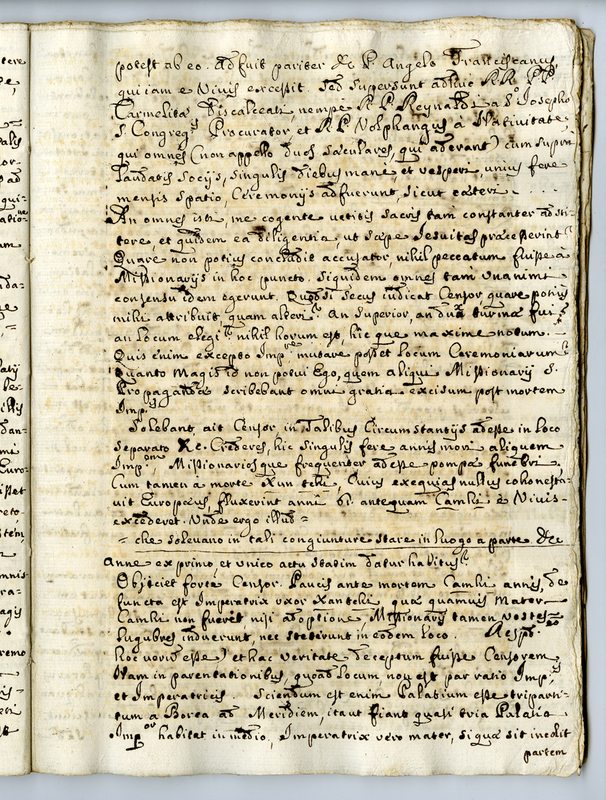 potest ab eo. Adfuit pariter & P. Angelo Franciscanus,
qui iam e Vivis excessit. Sed supersunt adhuc RR. PP.
Carmelitæ Discalceati, nempe R. P. Reynaldus a Sto Josepho
S. Congregis Procurator, et R. P. Volphangus à Nativitate,
qui omnes (non appello duos sæculares, qui aderant) cum supra
laudatis Socijs, singulis diebus mane et vesperi, unius fere
mensis spatio, Ceremonijs adfuerunt, sicut cæteri . . . .
An omnes isti, me cogente vetitis sacris tam constanter adsti-
tere, et quidem ea diligentia, ut sæpe Jesuitas præcesserint?
Quare non potius concludit accusator, nihil peccatum fuisse à
Missionarijs in hoc puncto. siquidem omnes tam unanimi
consensu idem egerunt. Quodsi secus iudicat Censor quare potius
mihi attribuit, quam alteri? An Superior, an dux turmæ fui?
an locum elegi? nihil horum est, hic que maxime notum.
Quis enim excepto Impre mutare potest Locum Ceremoniarum?
Quanto magis id non potui Ego, quem aliqui Missionarij S.
Propagandæ scribebant omni gratia excisum post mortem
Impris
Solebant, ait Censor, in talibus Circumstantijs adesse in loco
separato &c. Crederes, hic singulis fere annis mori aliquem
Imprem, Missionariosque frequenter adesse pompæ funebri.
Cum tamen à morte Xun tchi, Cuius exequias nullus cohonesta-
vit Europæus, fluxerint anni 61. antequam Camhi è Vivis
excederet. Unde ergo illud=
= che solevano in tali congiunture stare in luogo a parte &c
Anne ex primo, et unico actu statim datur habitus?
Objiciet forte Censor. Paucis ante mortem Camhi annis, de
functa est Imperatrix uxor Xantchi, quæ quamvis Mater
Camhi non fuerit nisi adoptione, Missionarij tamen vestes
lugubres induerunt, nec steterunt in eodem loco. Respo
hoc verum esse) et hac veritate deceptum fuisse Censorem.
Nam in parentationibus, quoad locum non est par ratio Impris
et Imperatricis. Sciendum est enim Palatium esse triparti-
tum a Borea ad Meridiem, itaut fiant quasi tria Palatia
Impor habitat in medio, Imperatrix vero mater, si quæ sit incolit
partem